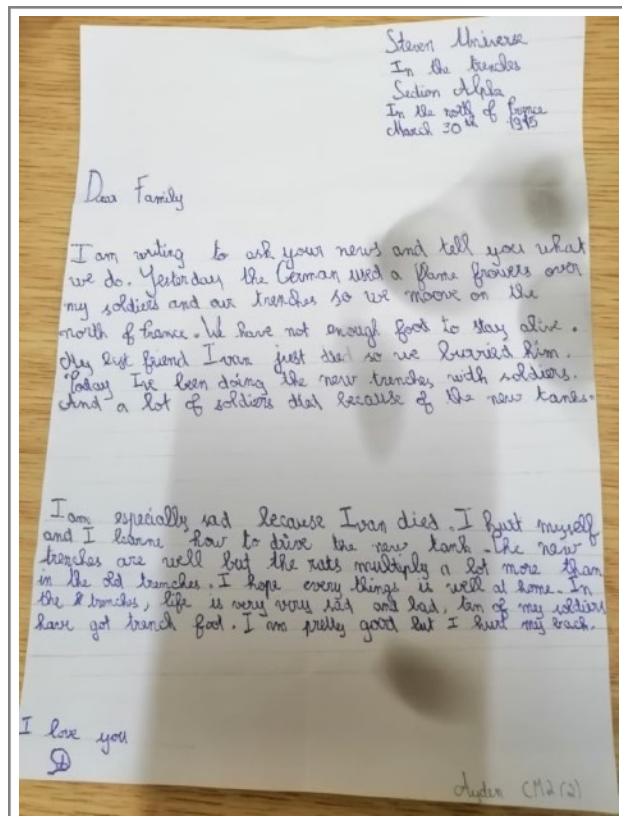 Steven Universe
In the trenches
Section Alpha
In the north of France
March 30th 1915
Dear Family
I am writing to ask your news and tell you what
we do. Yesterday the German used a flame frowers over
my soldiers and our trenches so we moove on the
north of france. We have not enough food to stay alive.
My best friend Ivan just died so we burried him.
Today I've been doing the new trenches with soldiers.
And a lot of soldiers died because of the new tanks.
I am especially sad because Ivan died. I hurt myself
and I learne how to drive the new tank. the new
trenches are well but the rats multiply a lot more than
in the old trenches. I hope every things is well at home. In
the trenches, life is very very sad and bad, ten of my soldiers
have got trench foot. I am pretty good but I hurt my back.
I love you
Ayden CM2(2)